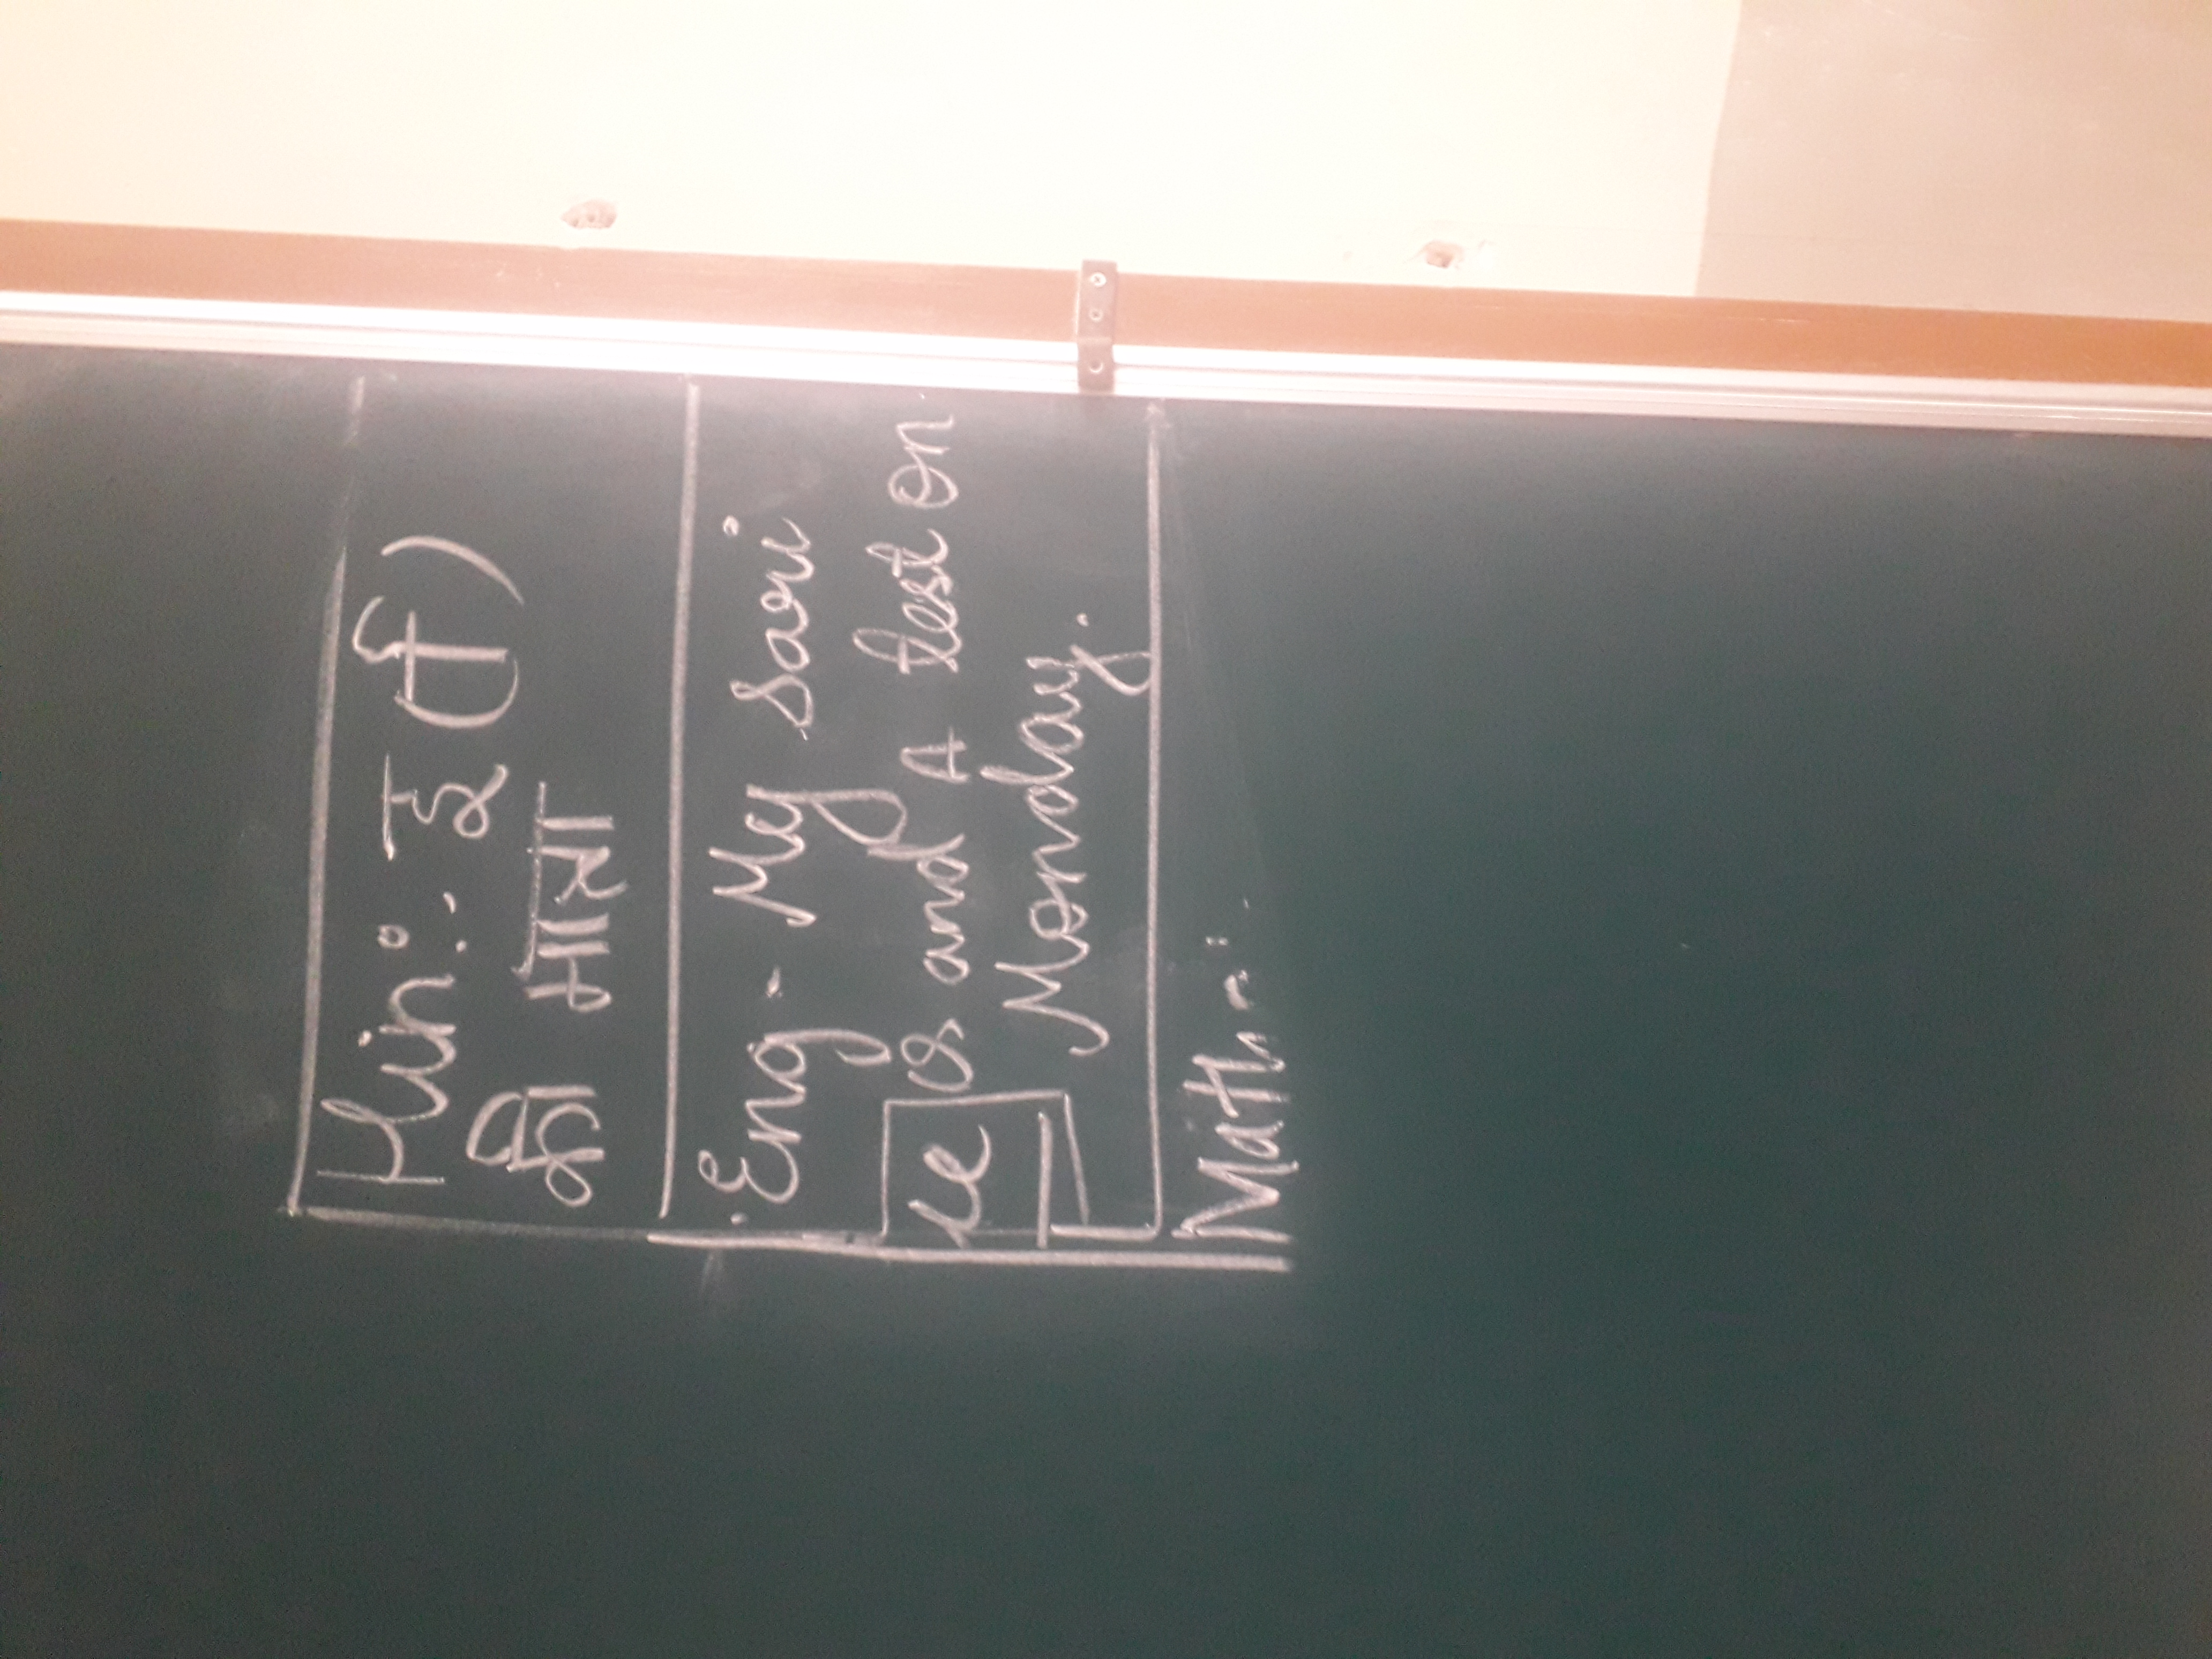 Hin:- इ (ि)
की मात्रा
Eng - My Sari
Qs and A test on
Monday.
Math -